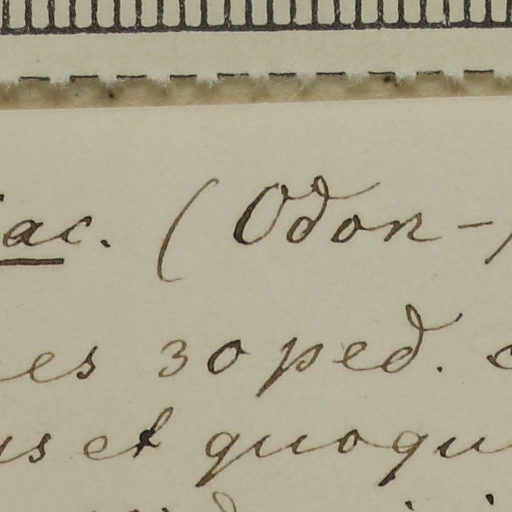 ac. (Odon-
es 30 ped.
us et quoqu